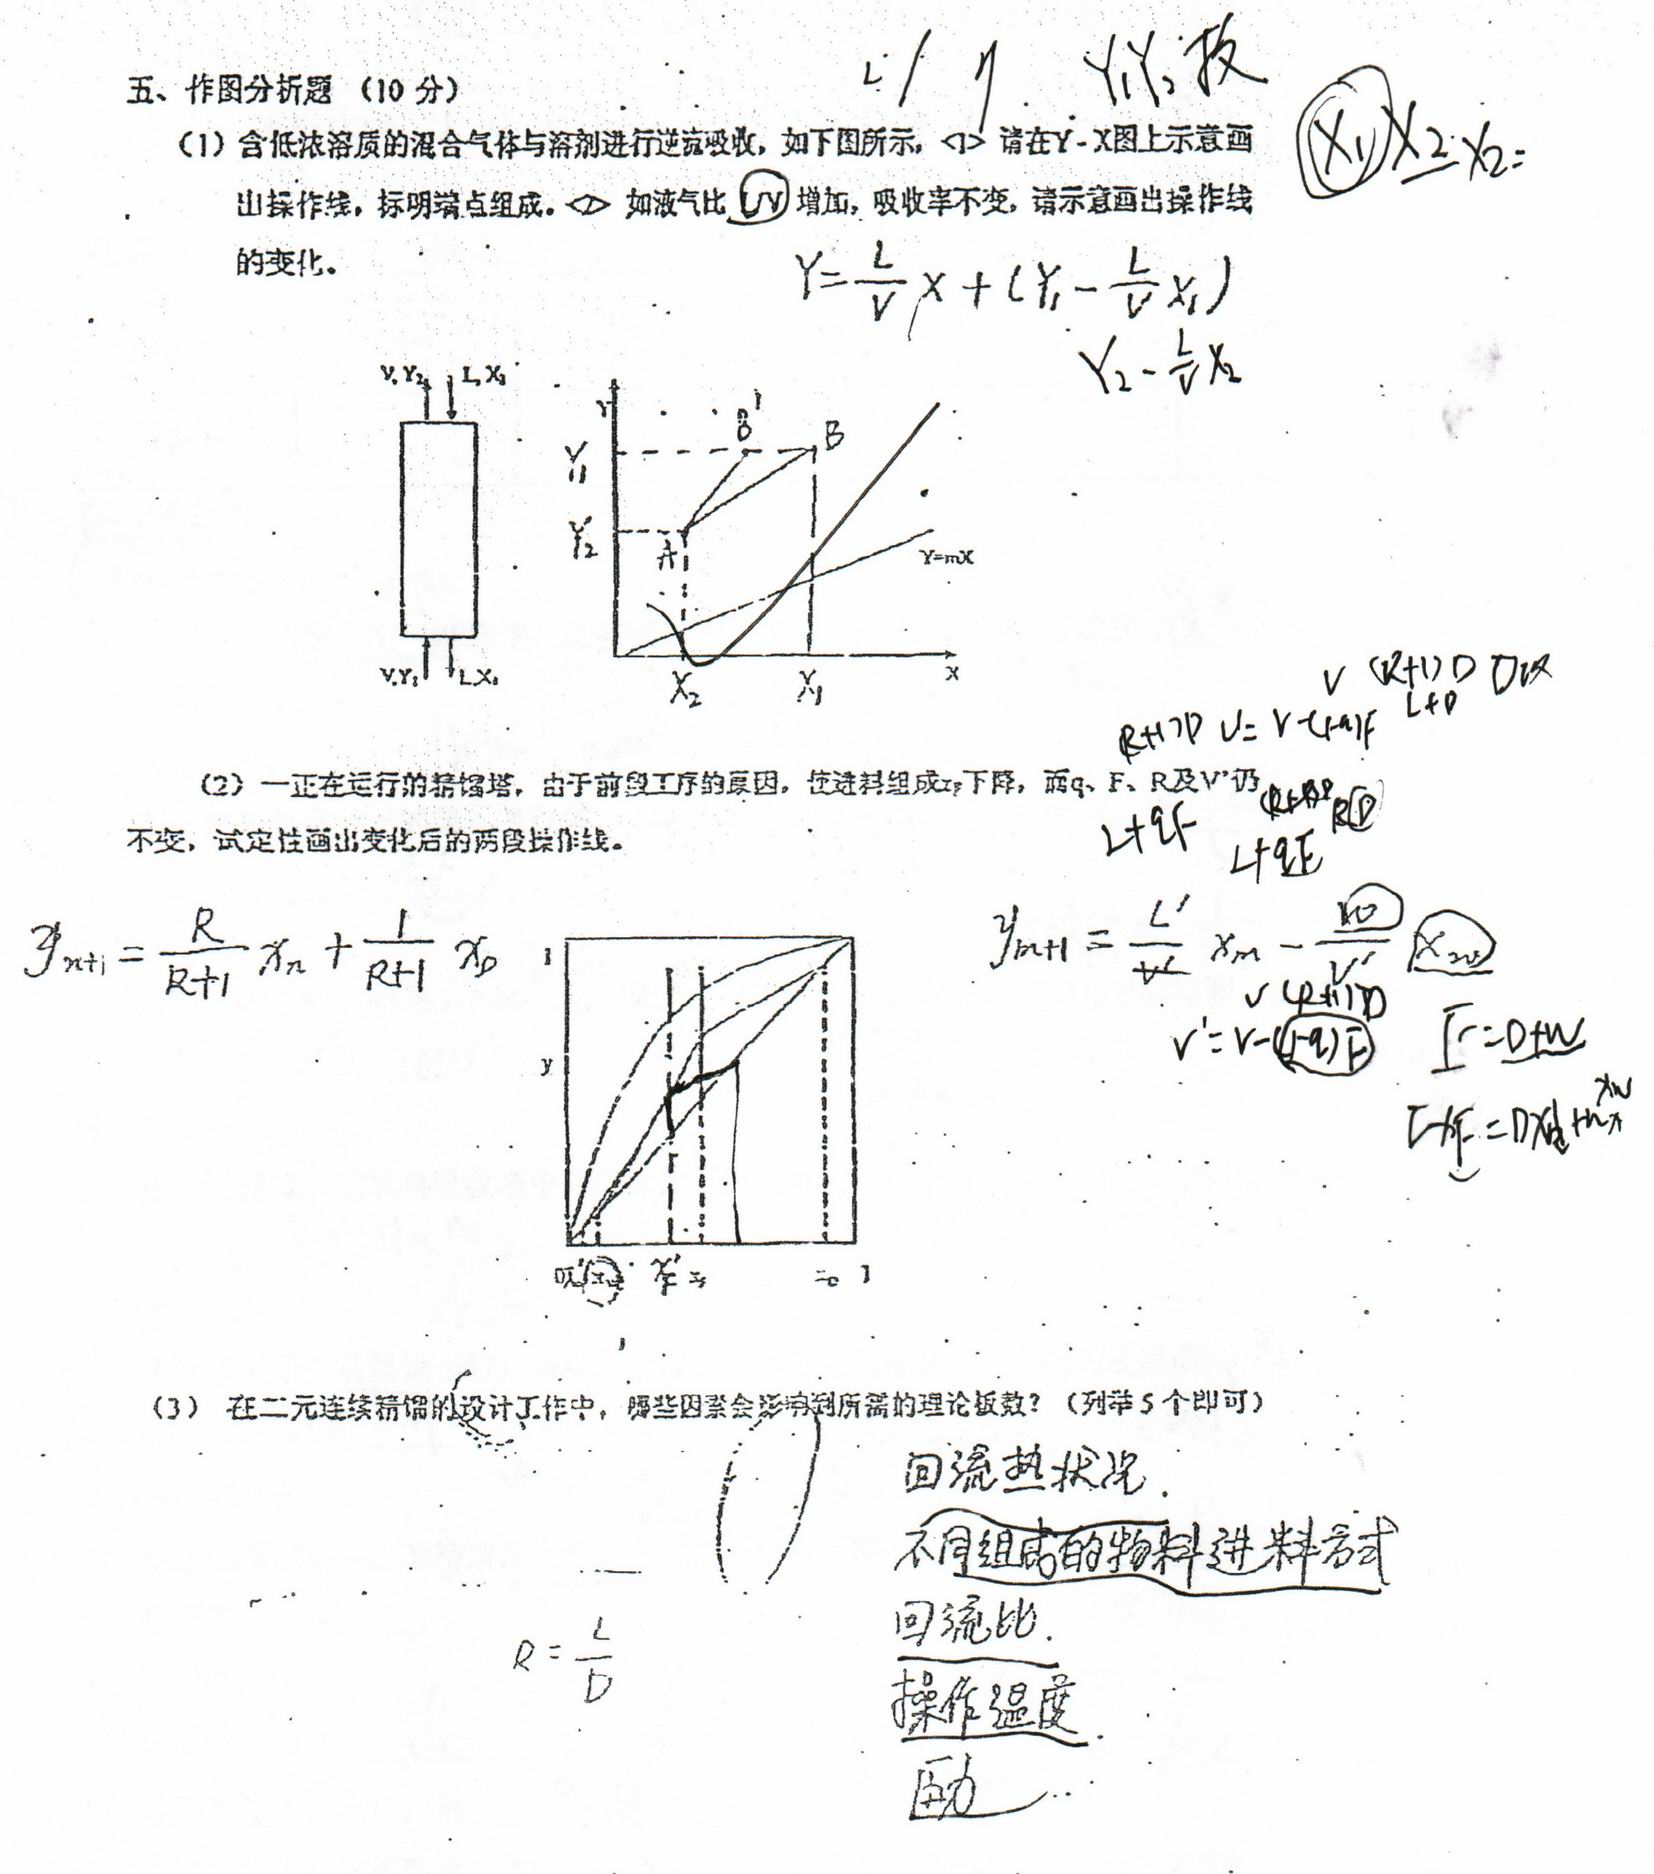 L/ η Y₁Y₂ 按
五、作图分析题（10 分）
（1）含低浓溶质的混合气体与溶剂进行逆流吸收，如下图所示，<1> 请在Y-X图上示意画
X₁ X₂ X₂=
出操作线，标明端点组成。<2> 如液气比 L/V 增加，吸收率不变，请示意画出操作线
的变化。
Y=L/V X+(Y₁-L/V X₁)
Y₂-L/V X₂
V,Y₂ L,X₂
Y
B' B
Y₁
Y₂
A
Y=mX
V,Y₁ L,X₁
X₂ X₁ X
V (R+1)D
L+D
(R+1)D V'=V-(1-q)F
（2）一正在运行的精馏塔，由于前段工序的原因，使进料组成x_F下降，而q、F、R及V'仍
不变，试定性画出变化后的两段操作线。
L+qF (R+1)D RD
L+qF
y_{n+1}=R/(R+1) x_n+1/(R+1) x_D
y_{m+1}=L'/V' x_m-W/V' x_w
V (R+1)D
V'=V-(1-q)F
F=D+W
1
y
0 x_w' x_w x_F' x_F x_D 1
（3） 在二元连续精馏的设计工作中，哪些因素会影响到所需的理论板数？（列举 5 个即可）
回流热状况.
不同组成的物料进料方式
回流比.
R=L/D
操作温度.
压力